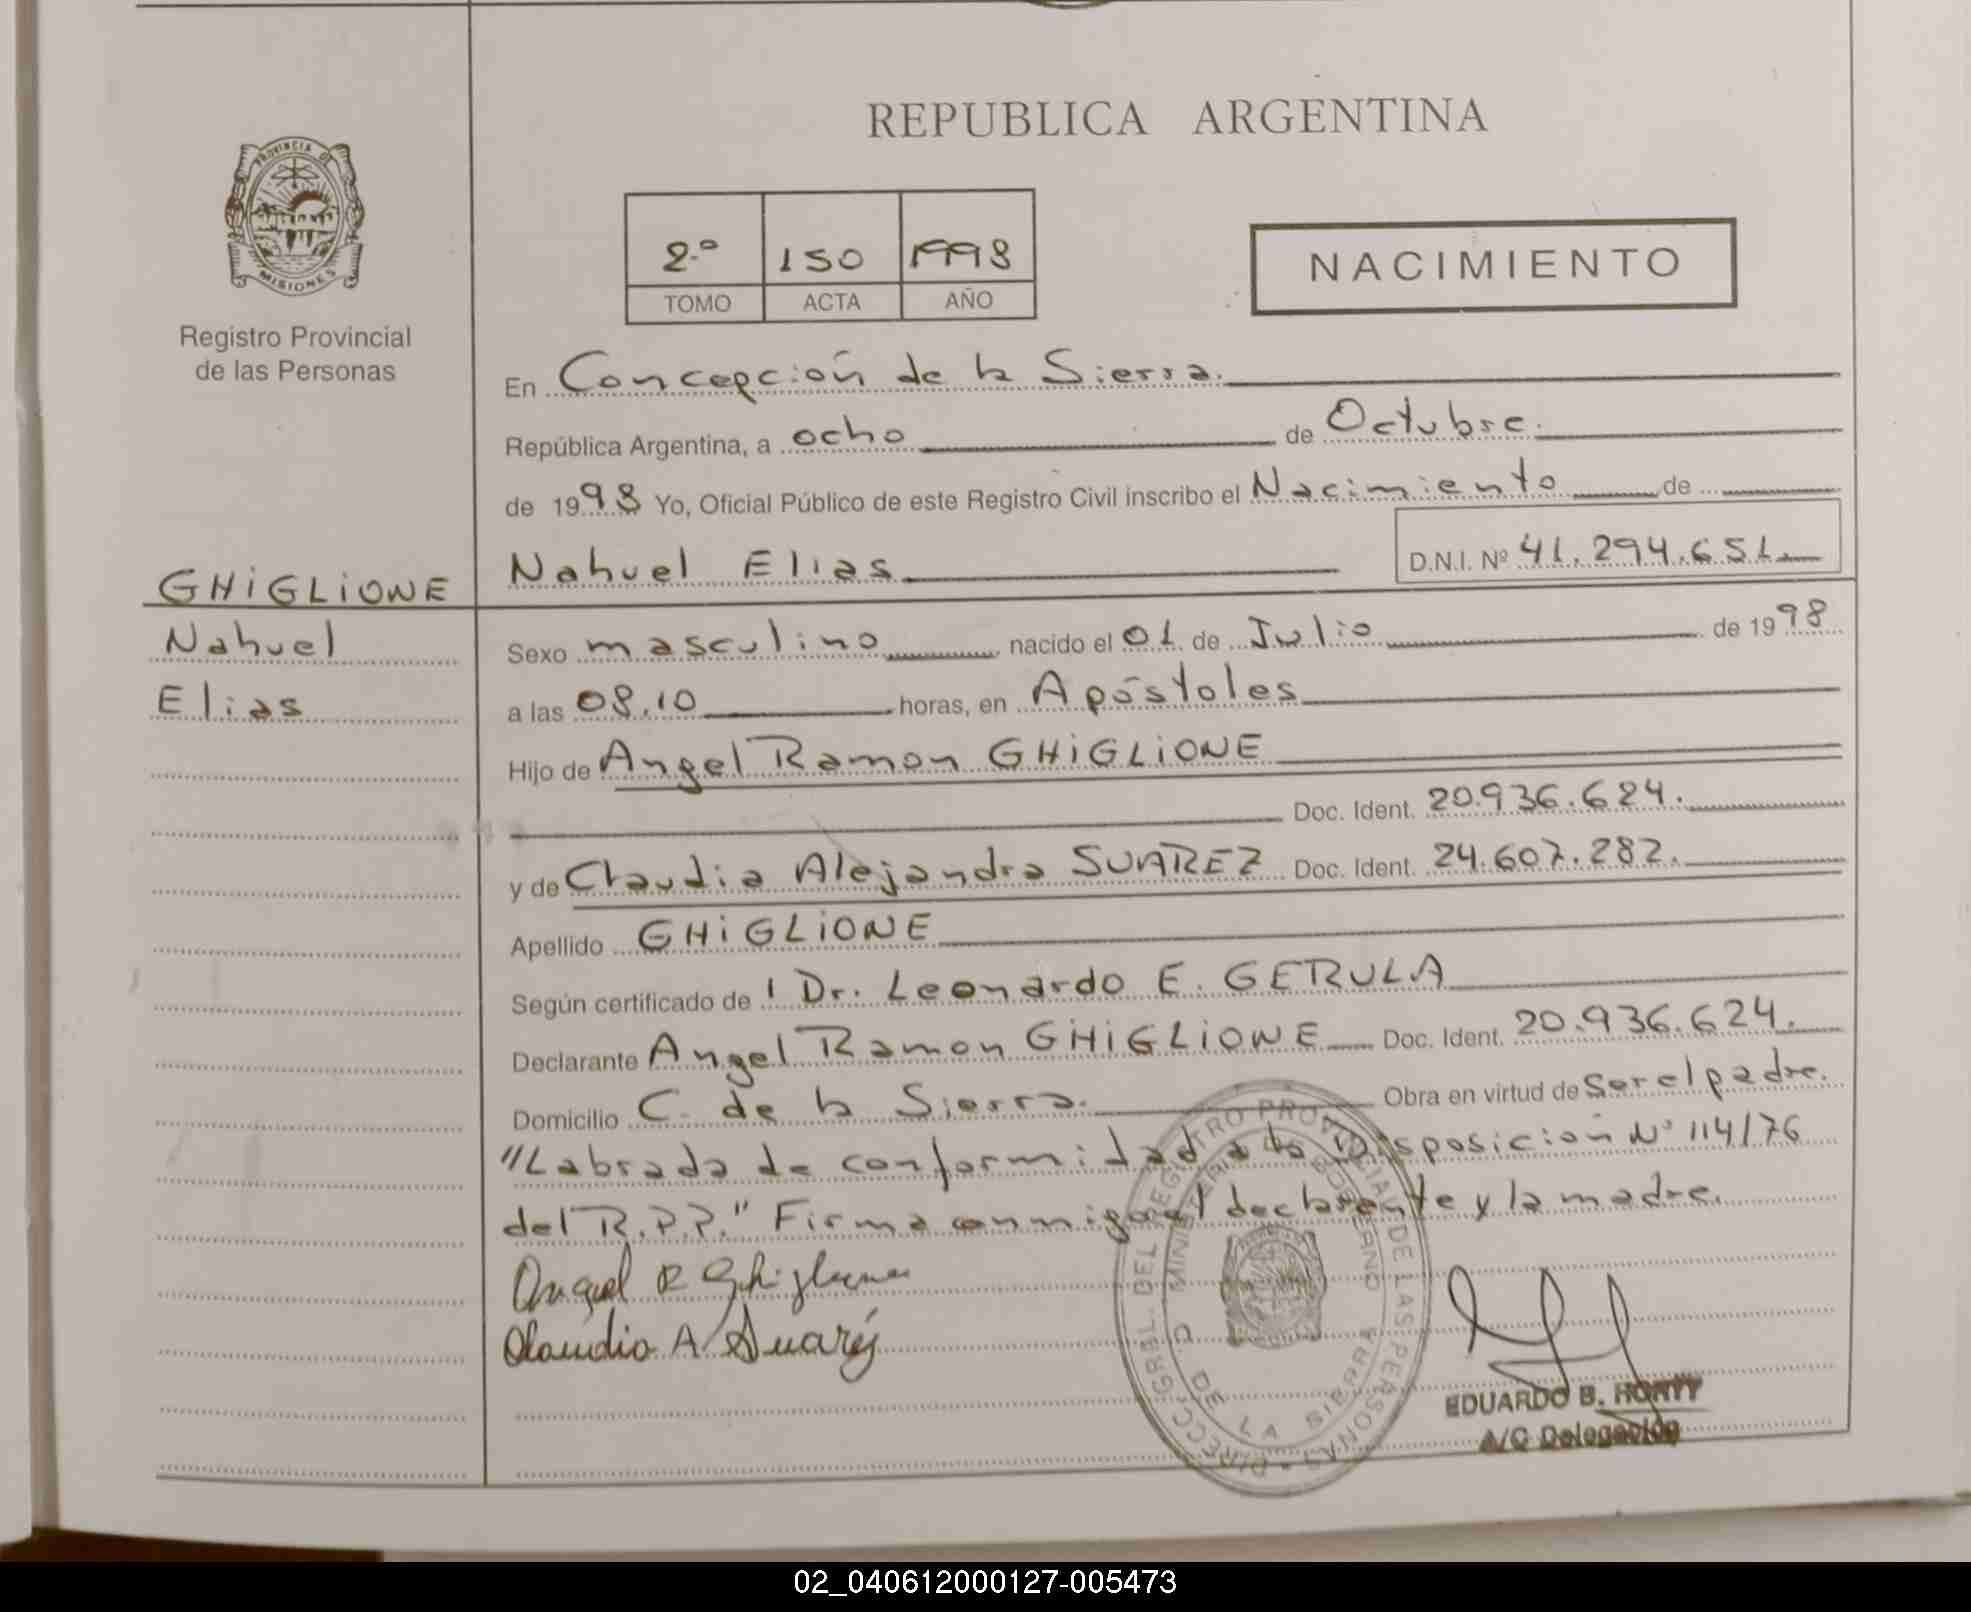 REPUBLICA ARGENTINA
PROVINCIA DE
MISIONES
Registro Provincial
de las Personas
2.º 150 1998
TOMO ACTA AÑO
NACIMIENTO
En Concepción de la Sierra.
República Argentina, a ocho de Octubre.
de 1998 Yo, Oficial Público de este Registro Civil inscribo el Nacimiento de
Nahuel Elias D.N.I. Nº 41.294.651.
GHiGLiONE
Nahuel
Elias
Sexo masculino nacido el 01 de Julio de 1998
a las 08.10 horas, en Apóstoles
Hijo de Angel Ramon GHiGLiONE
Doc. Ident. 20.936.624.
y de Claudia Alejandra SUAREZ Doc. Ident. 24.607.282.
Apellido GHiGLiONE
Según certificado de Dr. Leonardo E. GERULA
Declarante Angel Ramon GHiGLiONE Doc. Ident. 20.936.624.
Domicilio C. de la Sierra. Obra en virtud de ser el padre.
"Labrada de conformidad a la Disposición Nº 114/76
del R.P.P." Firma conmigo el declarante y la madre.
Angel R Ghiglione
Claudia A Suaréz
DIRECC. GRAL. DEL REGISTRO PROVINCIAL DE LAS PERSONAS
MINISTERIO GOBIERNO
C. DE LA SIERRA
EDUARDO B. HORTT
A/C Delegación
02_040612000127-005473